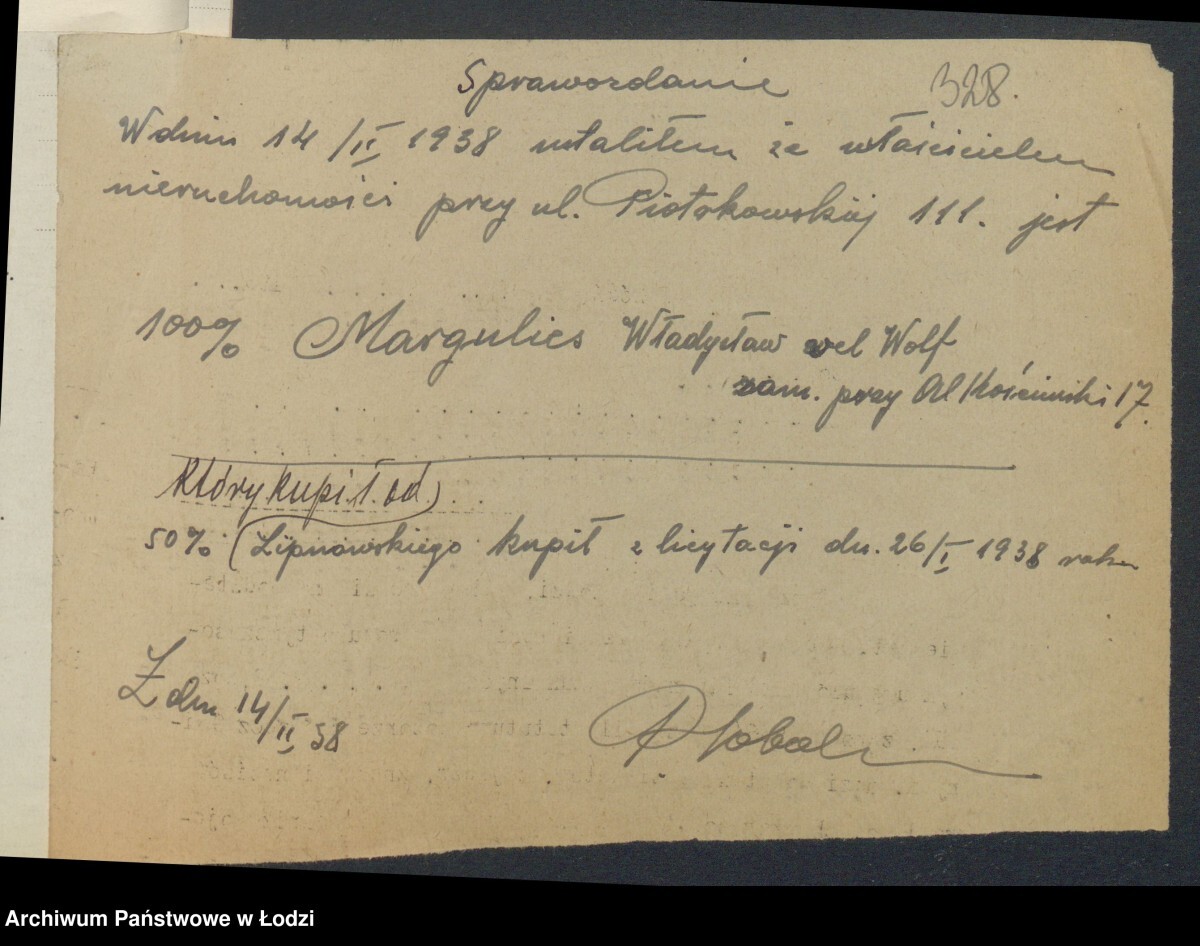 Sprawozdanie 328.
W dniu 14/II 1938 ustaliłem że właścicielem
nieruchomości przy ul. Piotrkowskiej 111. jest
100% Margulies Władysław vel Wolf
zam. przy Al Kościuszki 17.
który kupił od
50% (Lipnowskiego kupił z licytacji dn. 26/I 1938 roku
Ł dn 14/II 38
Archiwum Państwowe w Łodzi